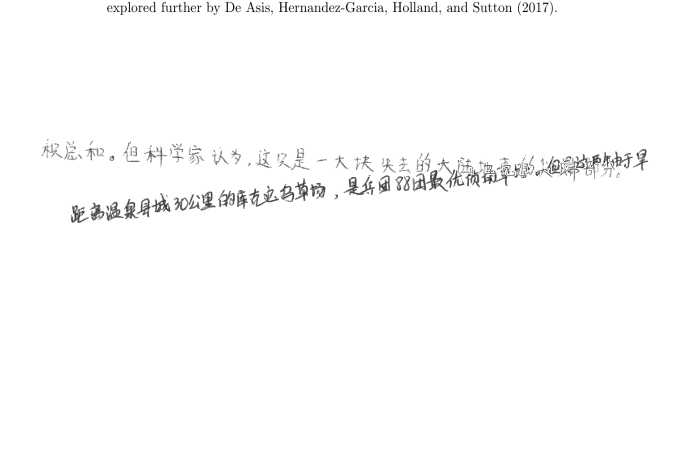 explored further by De Asis, Hernandez-Garcia, Holland, and Sutton (2017).
积总和。但科学家认为，这只是一大块失去的大陆
距离温泉县城30公里的库克它乌草场，是兵团88团最优质的草场。但是这两年由于旱